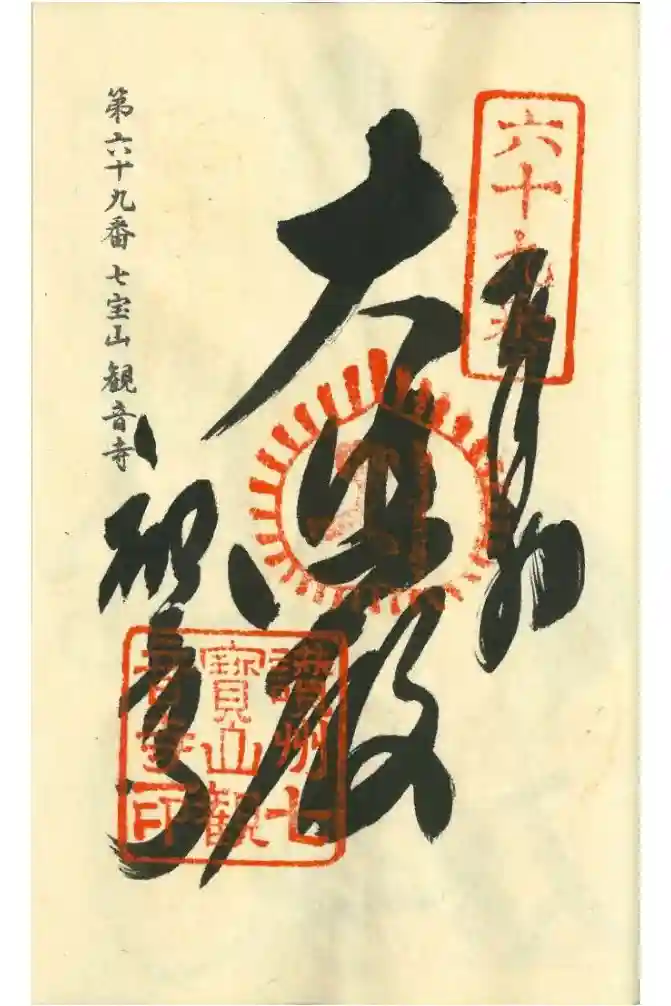 六十九番
奉納
大悲殿
観音寺
讃州七
寶山觀
音寺印
第六十九番 七宝山 観音寺